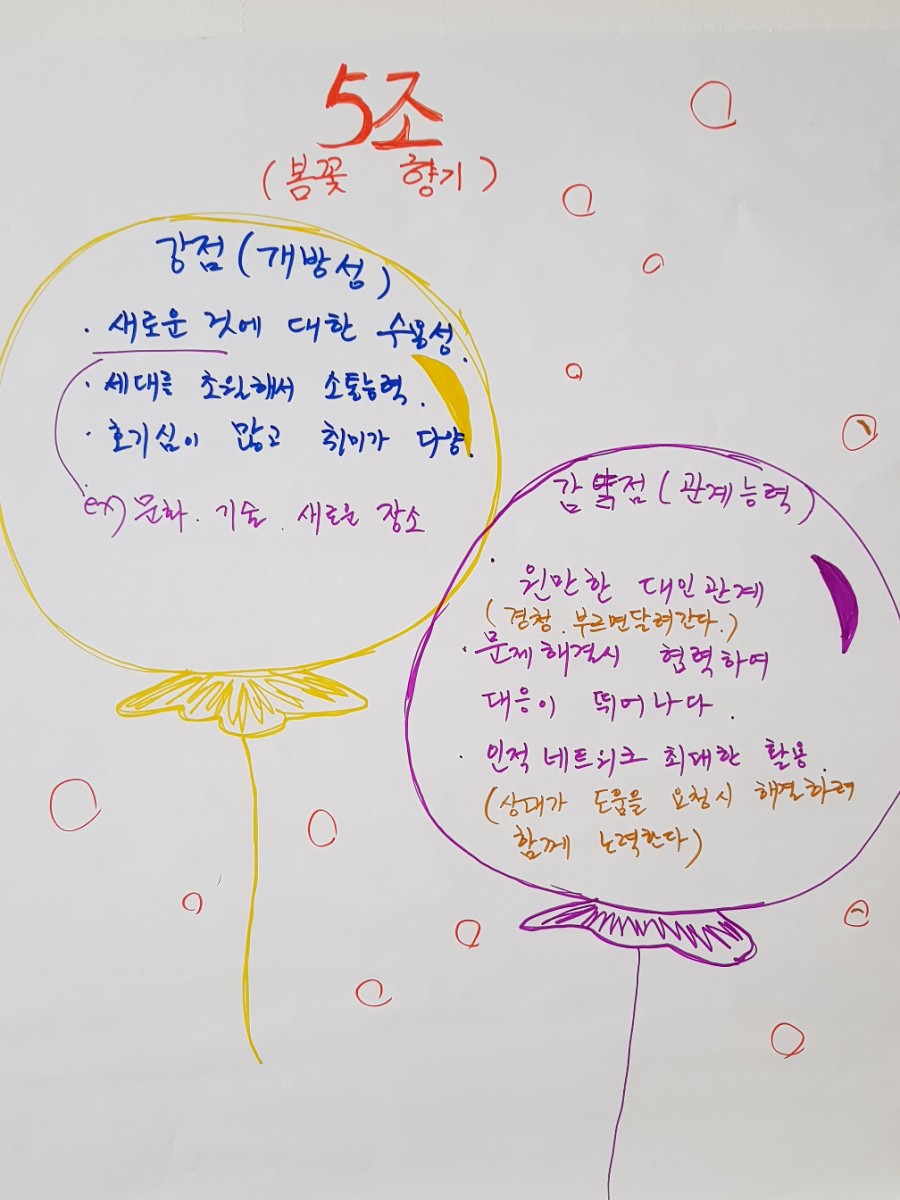 5조
(봄꽃 향기)
강점(개방성)
· 새로운 것에 대한 수용성.
· 세대를 초월해서 소통능력.
· 호기심이 많고 취미가 다양.
ex) 문화. 기술. 새로운 장소
감약점(관계능력)
· 원만한 대인관계
(경청. 부르면달려간다.)
· 문제해결시 협력하여
대응이 뛰어나다.
· 인적네트워크 최대한 활용.
(상대가 도움을 요청시 해결하려
함께 노력한다)